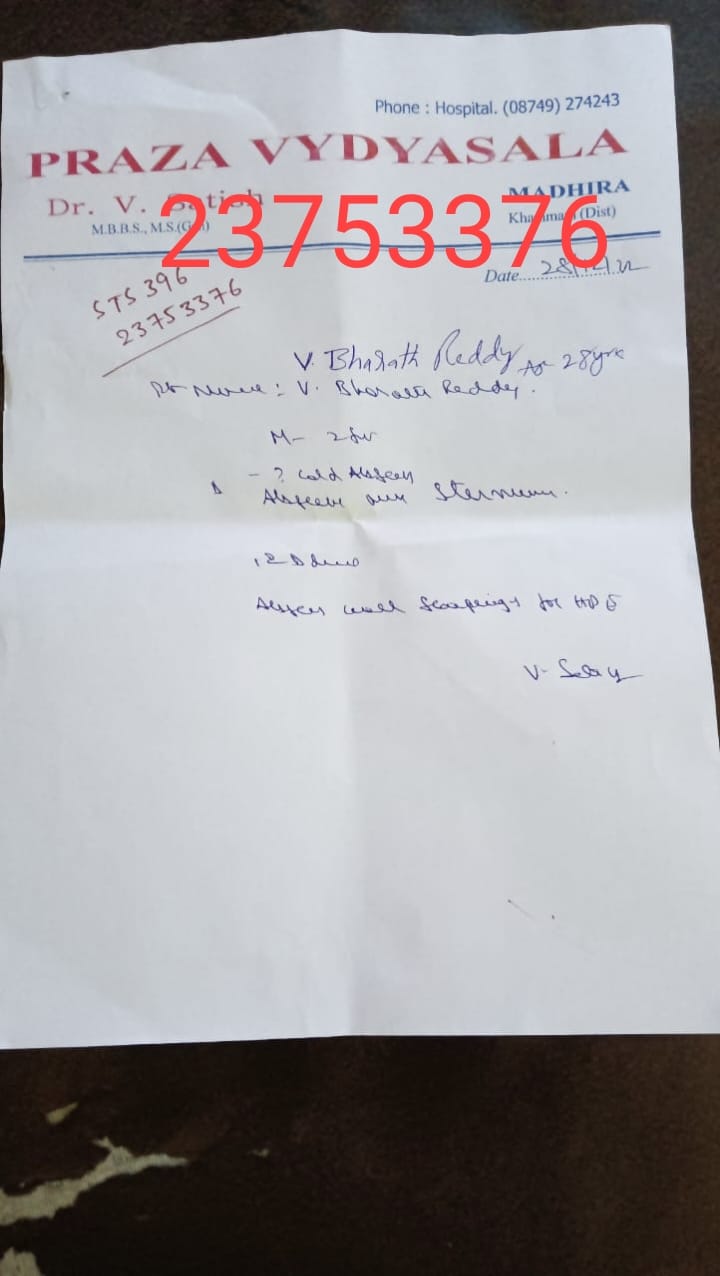 Phone : Hospital. (08749) 274243
PRAZA VYDYASALA
Dr. V. Satish
MADHIRA
M.B.B.S., M.S.(Gen)
Khammam (Dist)
23753376
Date 28/12/22
STS 396
23753376
V. Bharath Reddy Age 28yrs
Pt Name : V. Bharath Reddy.
M- 28y
- ? Cold Abscess
Abscess over Sternum.
I & D done
Abscess wall Scrapings for HPE